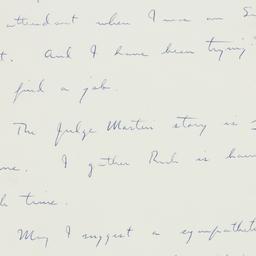 attendant when I was an
. And I have been trying
find a job.
The Judge Martin story is
me. I gather Ruth is
time.
May I suggest a sympathetic